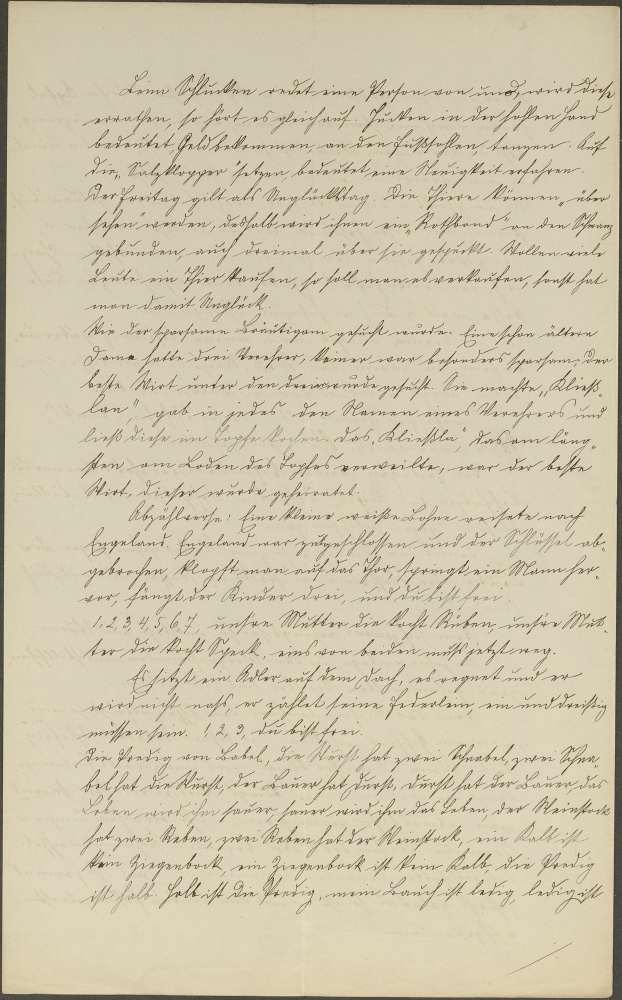 Beim Schlucken redet eine Person von uns, wird diese
errathen, so hört es gleich auf. Jucken in der hohlen Hand
bedeutet Geld bekommen, an den Fußsohlen, tanzen. Auf
die „Salzklopper" setzen, bedeutet eine Neuigkeit erfahren.
Der Freitag gilt als Unglückstag. Die Thiere können „über
sehen" werden, deshalb wird ihnen ein „Rothband" an den Schwanz
gebunden, auch dreimal über sie gespuckt. Wollen viele
Leute ein Thier kaufen, so soll man es verkaufen, sonst hat
man damit Unglück.
Wie der sparsame Bräutigam gesucht wurde. Eine schon ältere
Dame hatte drei Verehrer, keiner war besonders sparsam. Der
beste Wirt unter den drein wurde gesucht. Sie machte „Kließ-
lan", gab in jedes den Namen eines Verehrers und
ließ diese im Topfe kochen. Das „Kließla", das am läng-
sten am Boden des Topfes verweilte, war der beste
Wirt, dieser wurde geheiratet.
Abzählverse: Eine kleine weiße Bohne reisete nach
Engeland, Engeland war zugeschlossen und der Schlüssel ab-
gebrochen, klopft man auf das Thor, springt ein Mann her-
vor, fängt der Kinder drei, und du bist frei.
1, 2, 3, 4, 5, 6, 7, unsre Mutter die kocht Rüben, unsre Mut-
ter die kocht Speck, eins von beiden muß jetzt weg.
Es sitzt ein Adler auf dem Dach, es regnet und er
wird nicht nass, er zählet seine Federlein, ein und dreißig
müssen sein. 1, 2, 3, du bist frei.
Die Predig von Babel, die Wurst hat zwei Schnabel, zwei Schna-
bel hat die Wurst, der Bauer hat Durst, Durst hat der Bauer, das
Leben wird ihm sauer, sauer wird ihm das Leben, der Weinstock
hat zwei Reben, zwei Reben hat der Weinstock, ein Kalb ist
kein Ziegenbock, ein Ziegenbock ist kein Kalb, die Predig
ist halb. Halb ist die Predig, mein Bauch ist ledig, ledig ist